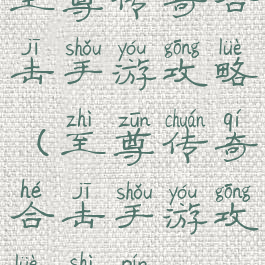 至尊传奇合
jī shǒu yóu gōng lüè
击手游攻略
zhì zūn chuán qí
(至尊传奇
hé jī shǒu yóu gōng
合击手游攻
lüè shì pín